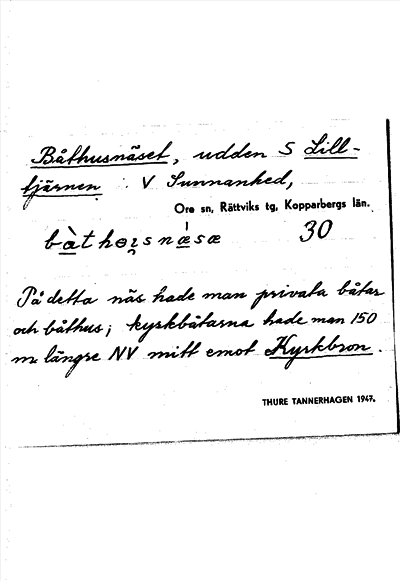 Båthusnäset, udden S Lill-
tjärnen V Sunnanhed,
Ore sn, Rättviks tg, Kopparbergs län.
30
På detta näs hade man privata båtar
och båthus; kyrkbåtarna hade man 150
m längre NV mitt emot Kyrkbron.
THURE TANNERHAGEN 1947.